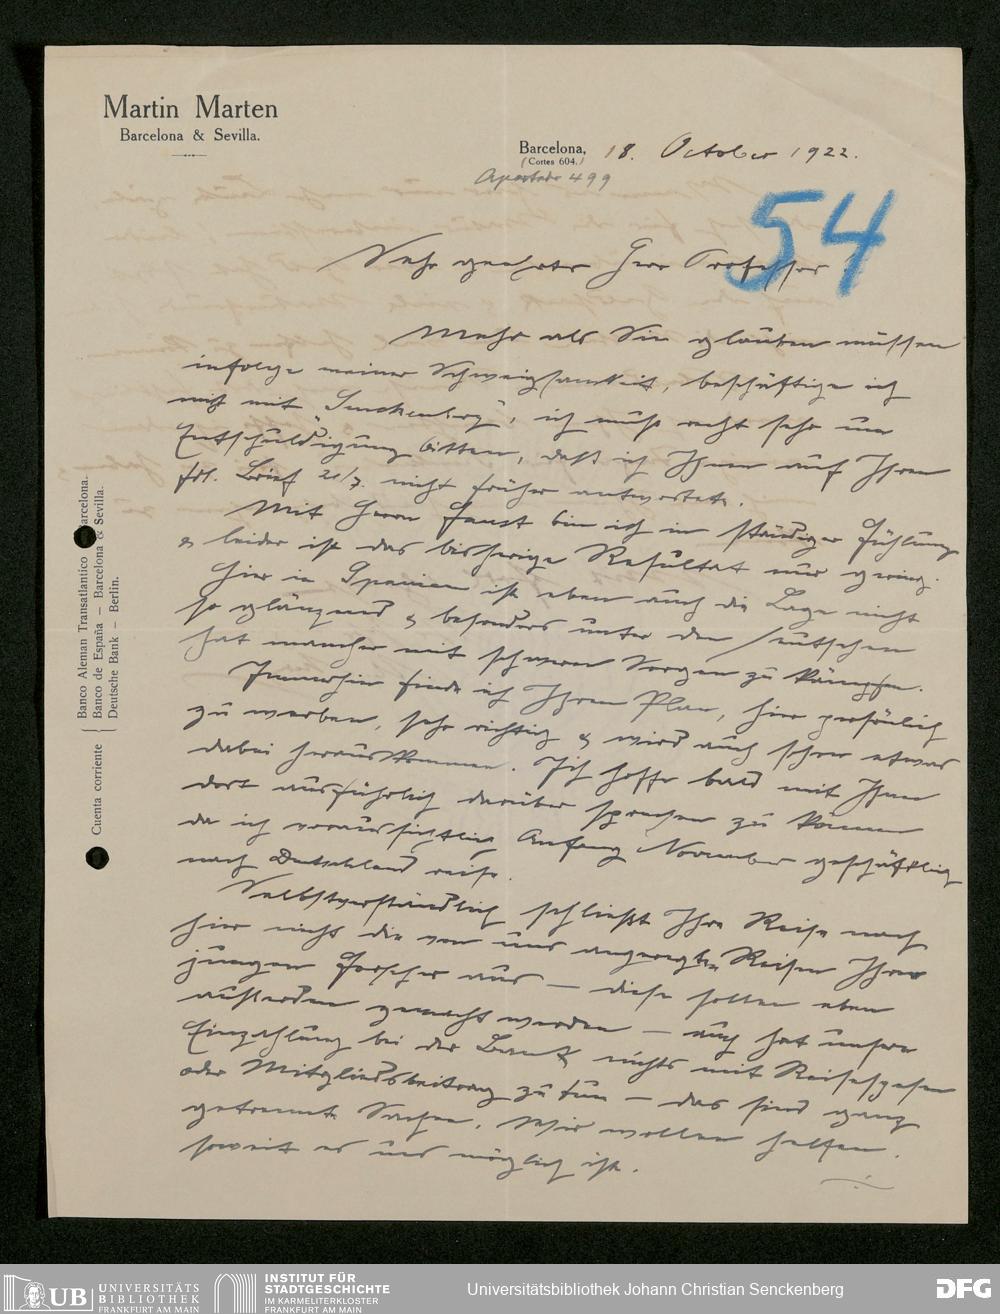 Martin Marten
Barcelona & Sevilla.
Barcelona, 18. October 1922.
(Cortes 604.)
Apartado 499
54
Sehr geehrter Herr Professor
Mehr als Sie glauben müssen
infolge meiner Schweigsamkeit, beschäftige ich
mich mit "Senckenberg", ich muß recht sehr um
Entschuldigung bitten, daß ich Ihnen auf Ihren
frdl. Brief 21/7. nicht früher antwortete.
Mit Herrn Haust bin ich in ständiger Fühlung
& leider ist das bisherige Resultat nur gering.
Hier in Spanien ist eben auch die Lage nicht
so glänzend & besonders unter den Deutschen
hat mancher mit schweren Sorgen zu kämpfen.
Immerhin finde ich Ihren Plan, hier persönlich
zu werben, sehr richtig & wird auch schon etwas
dabei herauskommen. Ich hoffe bald mit Ihnen
dort ausführlich darüber sprechen zu können
da ich voraussichtlich Anfang November geschäftlich
nach Deutschland reise.
Selbstverständlich schließt Ihre Reise nach
hier nicht die von uns angeregten Reisen Ihrer
jungen Forscher aus — diese sollen eben
außerdem gemacht werden — auch hat unsere
Einzahlung bei der Bank nichts mit Reisespesen
oder Mitgliedsbeitrag zu tun — das sind ganz
getrennte Sachen. Wir wollen helfen.
soweit es uns möglich ist.
Cuenta corriente
Banco Aleman Transatlantico Barcelona.
Banco de España — Barcelona & Sevilla.
Deutsche Bank — Berlin.
UB UNIVERSITÄTS
BIBLIOTHEK
FRANKFURT AM MAIN
INSTITUT FÜR
STADTGESCHICHTE
IM KARMELITERKLOSTER
FRANKFURT AM MAIN
Universitätsbibliothek Johann Christian Senckenberg
DFG